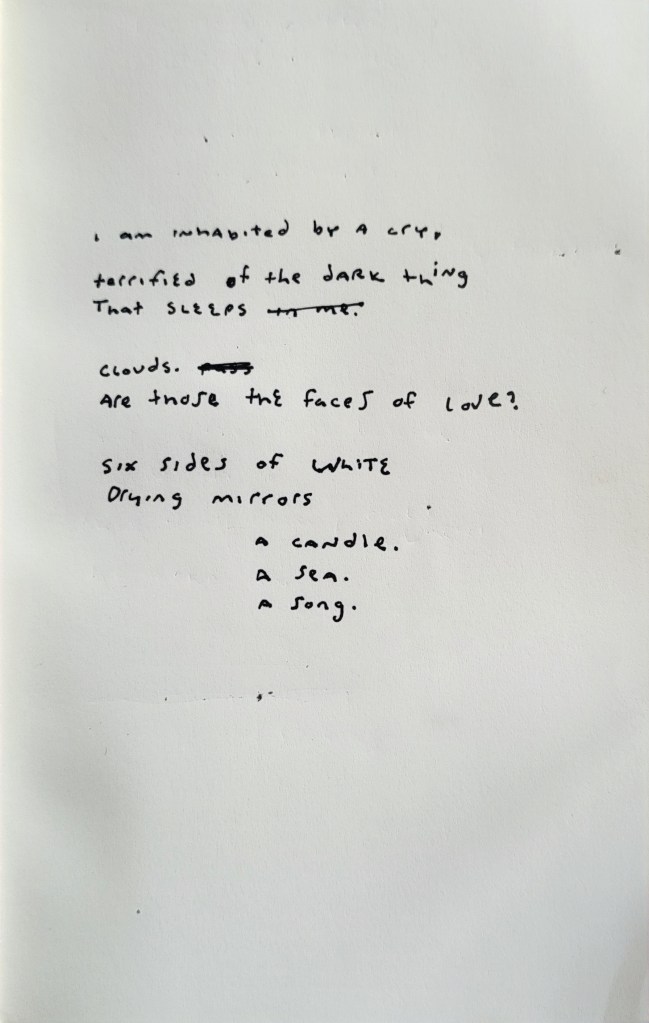 i am inhabited by a cry,
terrified of the dark thing
That sleeps in me.
clouds. pass
Are those the faces of love?
six sides of white
Drying mirrors
A candle.
A sea.
A song.